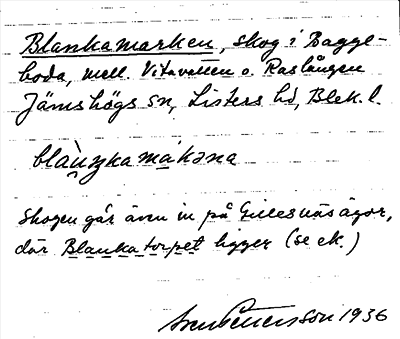 Blankamarken, skog i Bagge-
boda, mell. Vitavatten o. Raslången
Jämshögs sn, Listers hd, Blek. l.
blaùŋkamákəna
Skogen går även in på Gillesnäs ägor,
där Blankatorpet ligger (se ek.)
1936